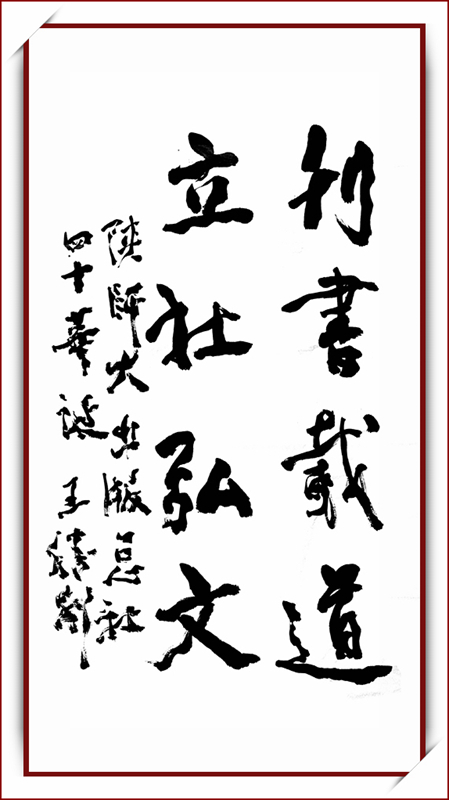 刊書載道
立社弘文
陕師大出版总社
四十華誕 王勝利